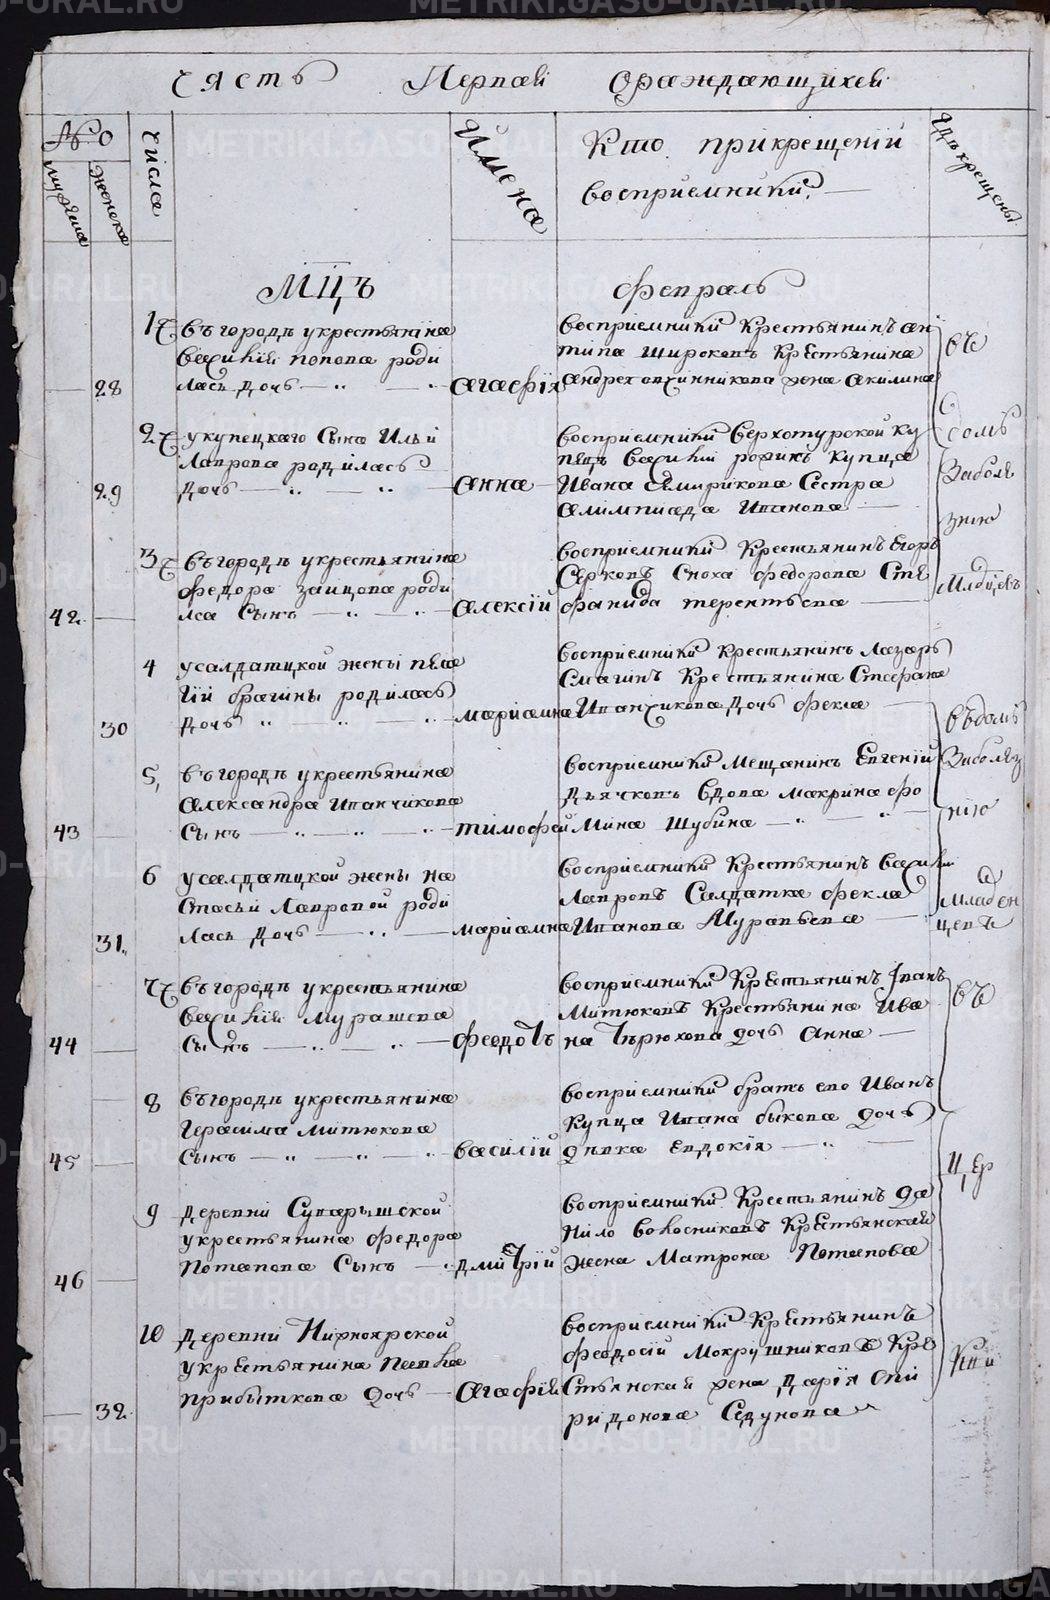 Часть Первая Ораждающихся
№о
мужеска
женска
числа
Имена
Кто прикрещении
восприемники.
Гдѣ крещены
Мцъ Февраль
1 въ городѣ укрестьянина
Василия попова роди
28 лась дочь Агафия
восприемники Крестьянинъ ан
типа широковъ Крестьянина
андрея овчинникова жена акилина
2 укупецкаго Сына Ильи
Лаврова родилась
29 дочь Анна
восприемники Верхотурской ку
пецъ Василий купца
Ивана Сестра
алимпиада Иванова
3 въ городѣ укрестьянина
федора заицова роди
42 лся Сынъ Алексий
восприемники Крестьянинъ Егоръ
Серковъ Сноха федорова Сте
фанида терентьева
4 усалдатцкой жены пела
гии брагины родилась
30 дочь мариамна
восприемники Крестьянинъ Лазарь
Смагинъ Крестьянина Стефана
Иванчикова дочь фекла
5 въ городѣ укрестьянина
александра иванчикова
43 Сынъ тимофей
восприемники мещанинъ Евгений
дьячковъ вдова макрина фо
мина шубина
6 усалдатцкой жены на
стасьи Лавровой роди
31 лась дочь мариамна
восприемники Крестьянинъ васили
Лавровъ Салдатка фекла
Иванова Муравьева
7 въ городѣ укрестьянина
василия мурашева
44 Сынъ феодотъ
восприемники Крестьянинъ Iванъ
митюковъ Крестьянина Ива
на тѣрюхова дочь анна
8 въ городѣ укрестьянина
герасима митюкова
45 Сынъ василий
восприемники братъ ево Иванъ
купца Ивана быкова дочь
дѣвка евдокия
9 деревни Сугарышской
укрестьянина федора
46 потапова Сынъ дмитрий
восприемники Крестьянинъ да
нило волосниковъ Крестьянская
жена матрона потапова
10 деревни Нижноярской
укрестьянина павла
32 прибыткова дочь агафия
восприемники Крестьянинъ
феодосий мокрушниковъ Кре
стьянская жена дария спи
ридонова Седунова
въ
домѣ
Заболе
знию
младцевъ
въ домѣ
Заболѣз
нию
младен
цевъ
въ
Цер
кви
METRIKI.GASO-URAL.RU